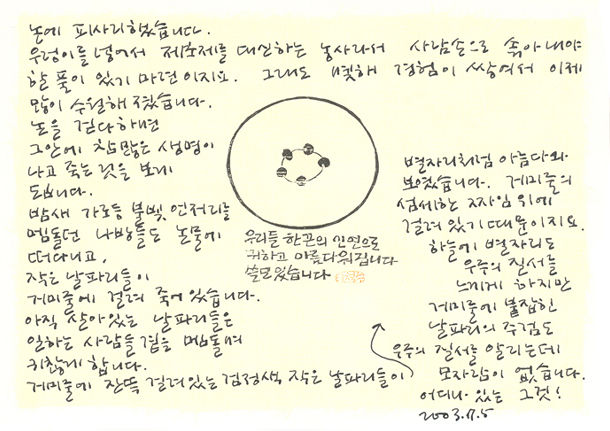 논에 피사리했습니다.
우렁이를 넣어서 제초제를 대신하는 농사라서 사람손으로 솎아내야
할 풀이 있기 마련이지요. 그래도 몇해 경험이 쌓여서 이제
많이 수월해졌습니다.
논을 걷다하면
그안에 참많은 생명이
나고 죽는것을 보게
됩니다.
밤새 가로등 불빛 언저리를
맴돌던 나방들도 논물에
떠다니고,
작은 날파리들이
거미줄에 걸려 죽어있습니다.
아직 살아있는 날파리들은
일하는 사람들 곁을 맴돌며
귀찮게 합니다.
거미줄에 잔뜩 걸려있는 검정색 작은 날파리들이
별자리처럼 아름다와
보였습니다. 거미줄의
섬세한 짜임위에
걸려있기 때문이지요.
하늘에 별자리도
우주의 질서를
느끼게 하지만
거미줄에 붙잡힌
날파리의 주검도
우주의 질서를 알리는데
모자람이 없습니다.
어디나 있는 그것!
2003.7.5
우리들 한끈의 인연으로
귀하고 아름다워집니다
살고있습니다